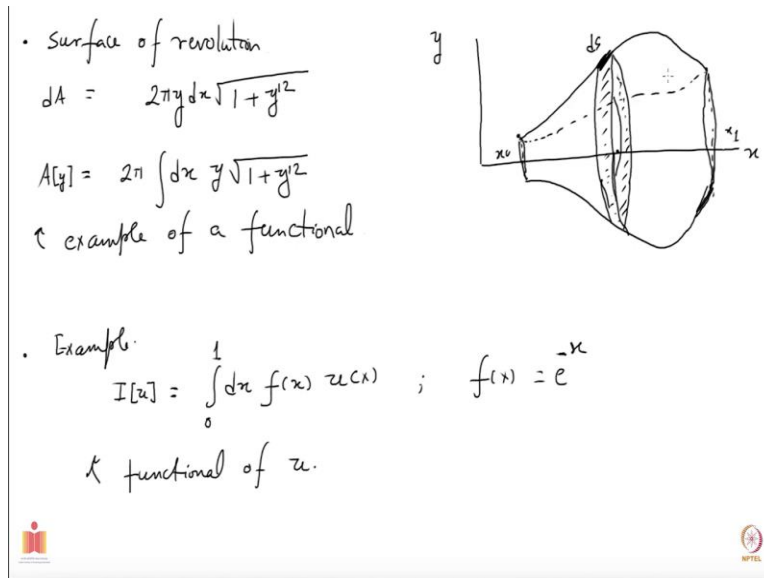 • Surface of revolution
dA = 2πy dx √1 + y'²
A[y] = 2π ∫ dx y √1 + y'²
↑ example of a functional
y
ds
x₀
x₁
x
• Example.
I[u] = ∫₀¹ dx f(x) u(x) ; f(x) = e⁻ˣ
↑ functional of u.
NPTEL